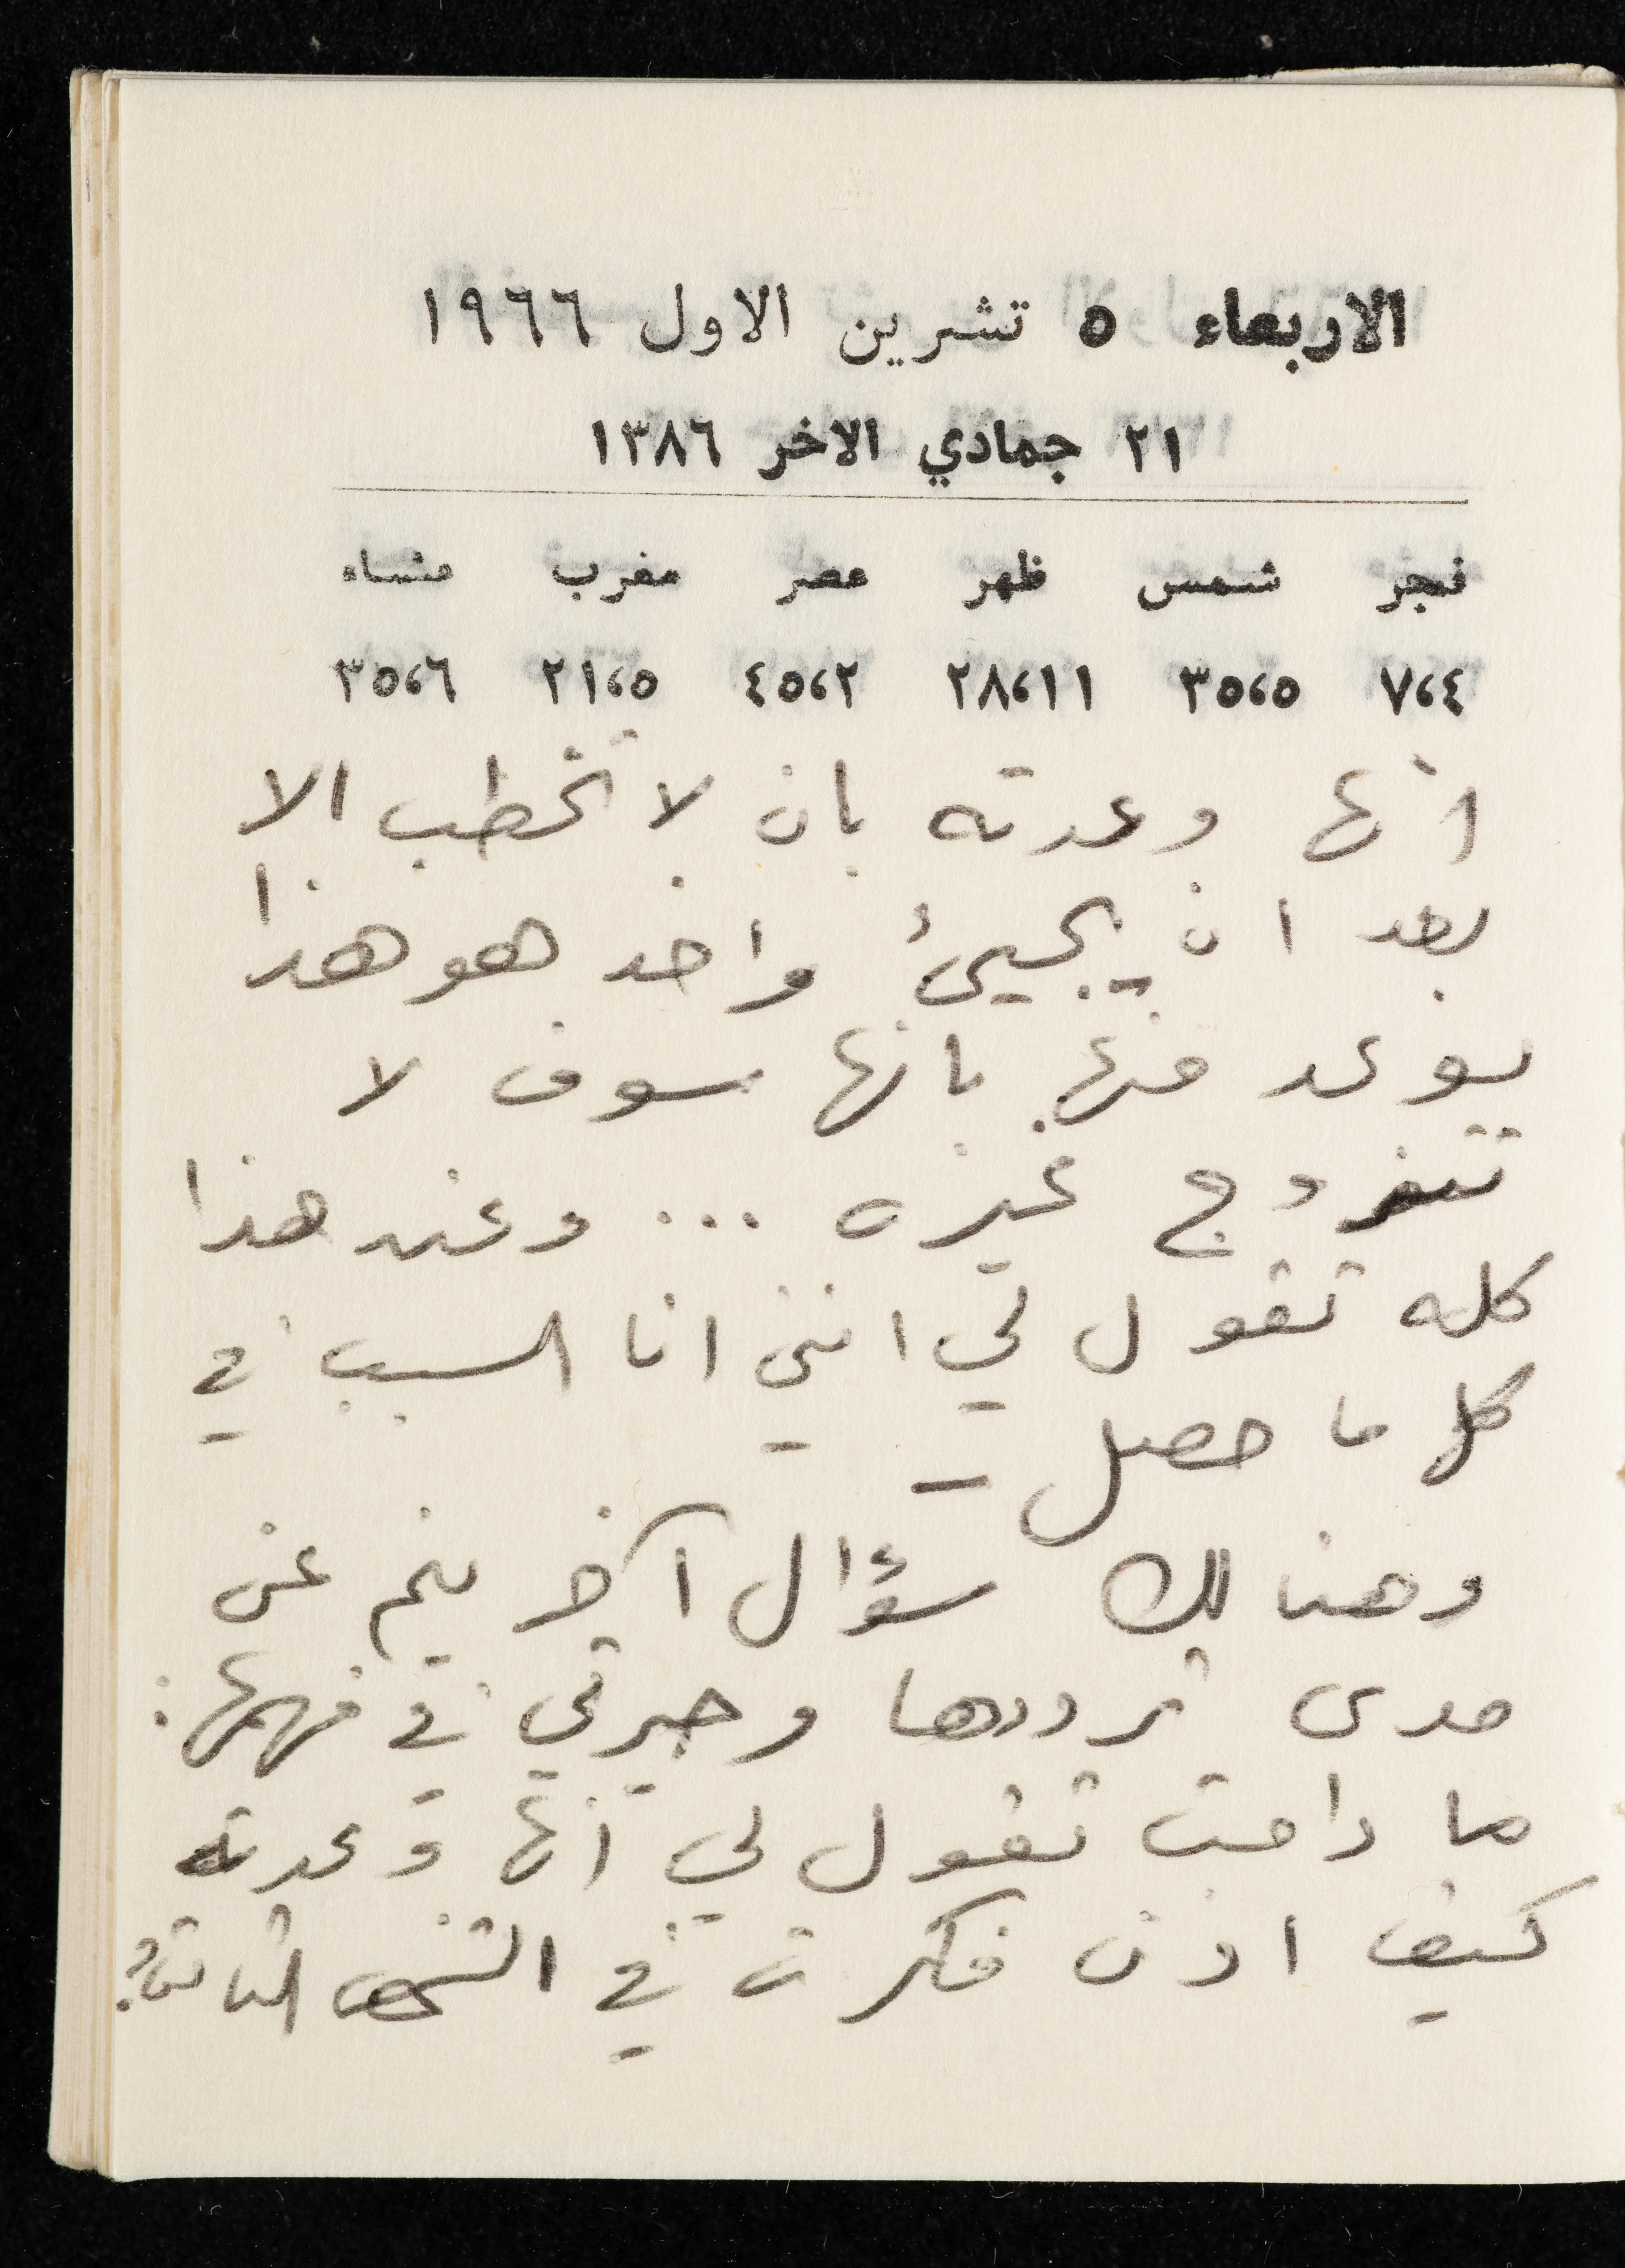 الاربعاء ٥ تشرين الاول ١٩٦٦
٢١ جمادي الاخر ١٣٨٦
فجر شمس ظهر عصر مغرب عشاء
٧،٤ ٣٥،٥ ٢٨،١١ ٤٥،٢ ٢١،٥ ٣٥،٦
انها وعدته بان لا تخطب الا
بعد ان يجيئ واخذ هو هذا
يوعد منها بانها سوف لا
تتزوج غيره ... وعند هذا
كله تقول لي انني انا السبب في
كل ما حصل _
وهنالك سؤال آخر ينم عن
مدى ترددها وحيرتي في فهمها :
ما دامت تقول لي انها وعدته
كيف اذن فكرت في الشخص الثاني؟